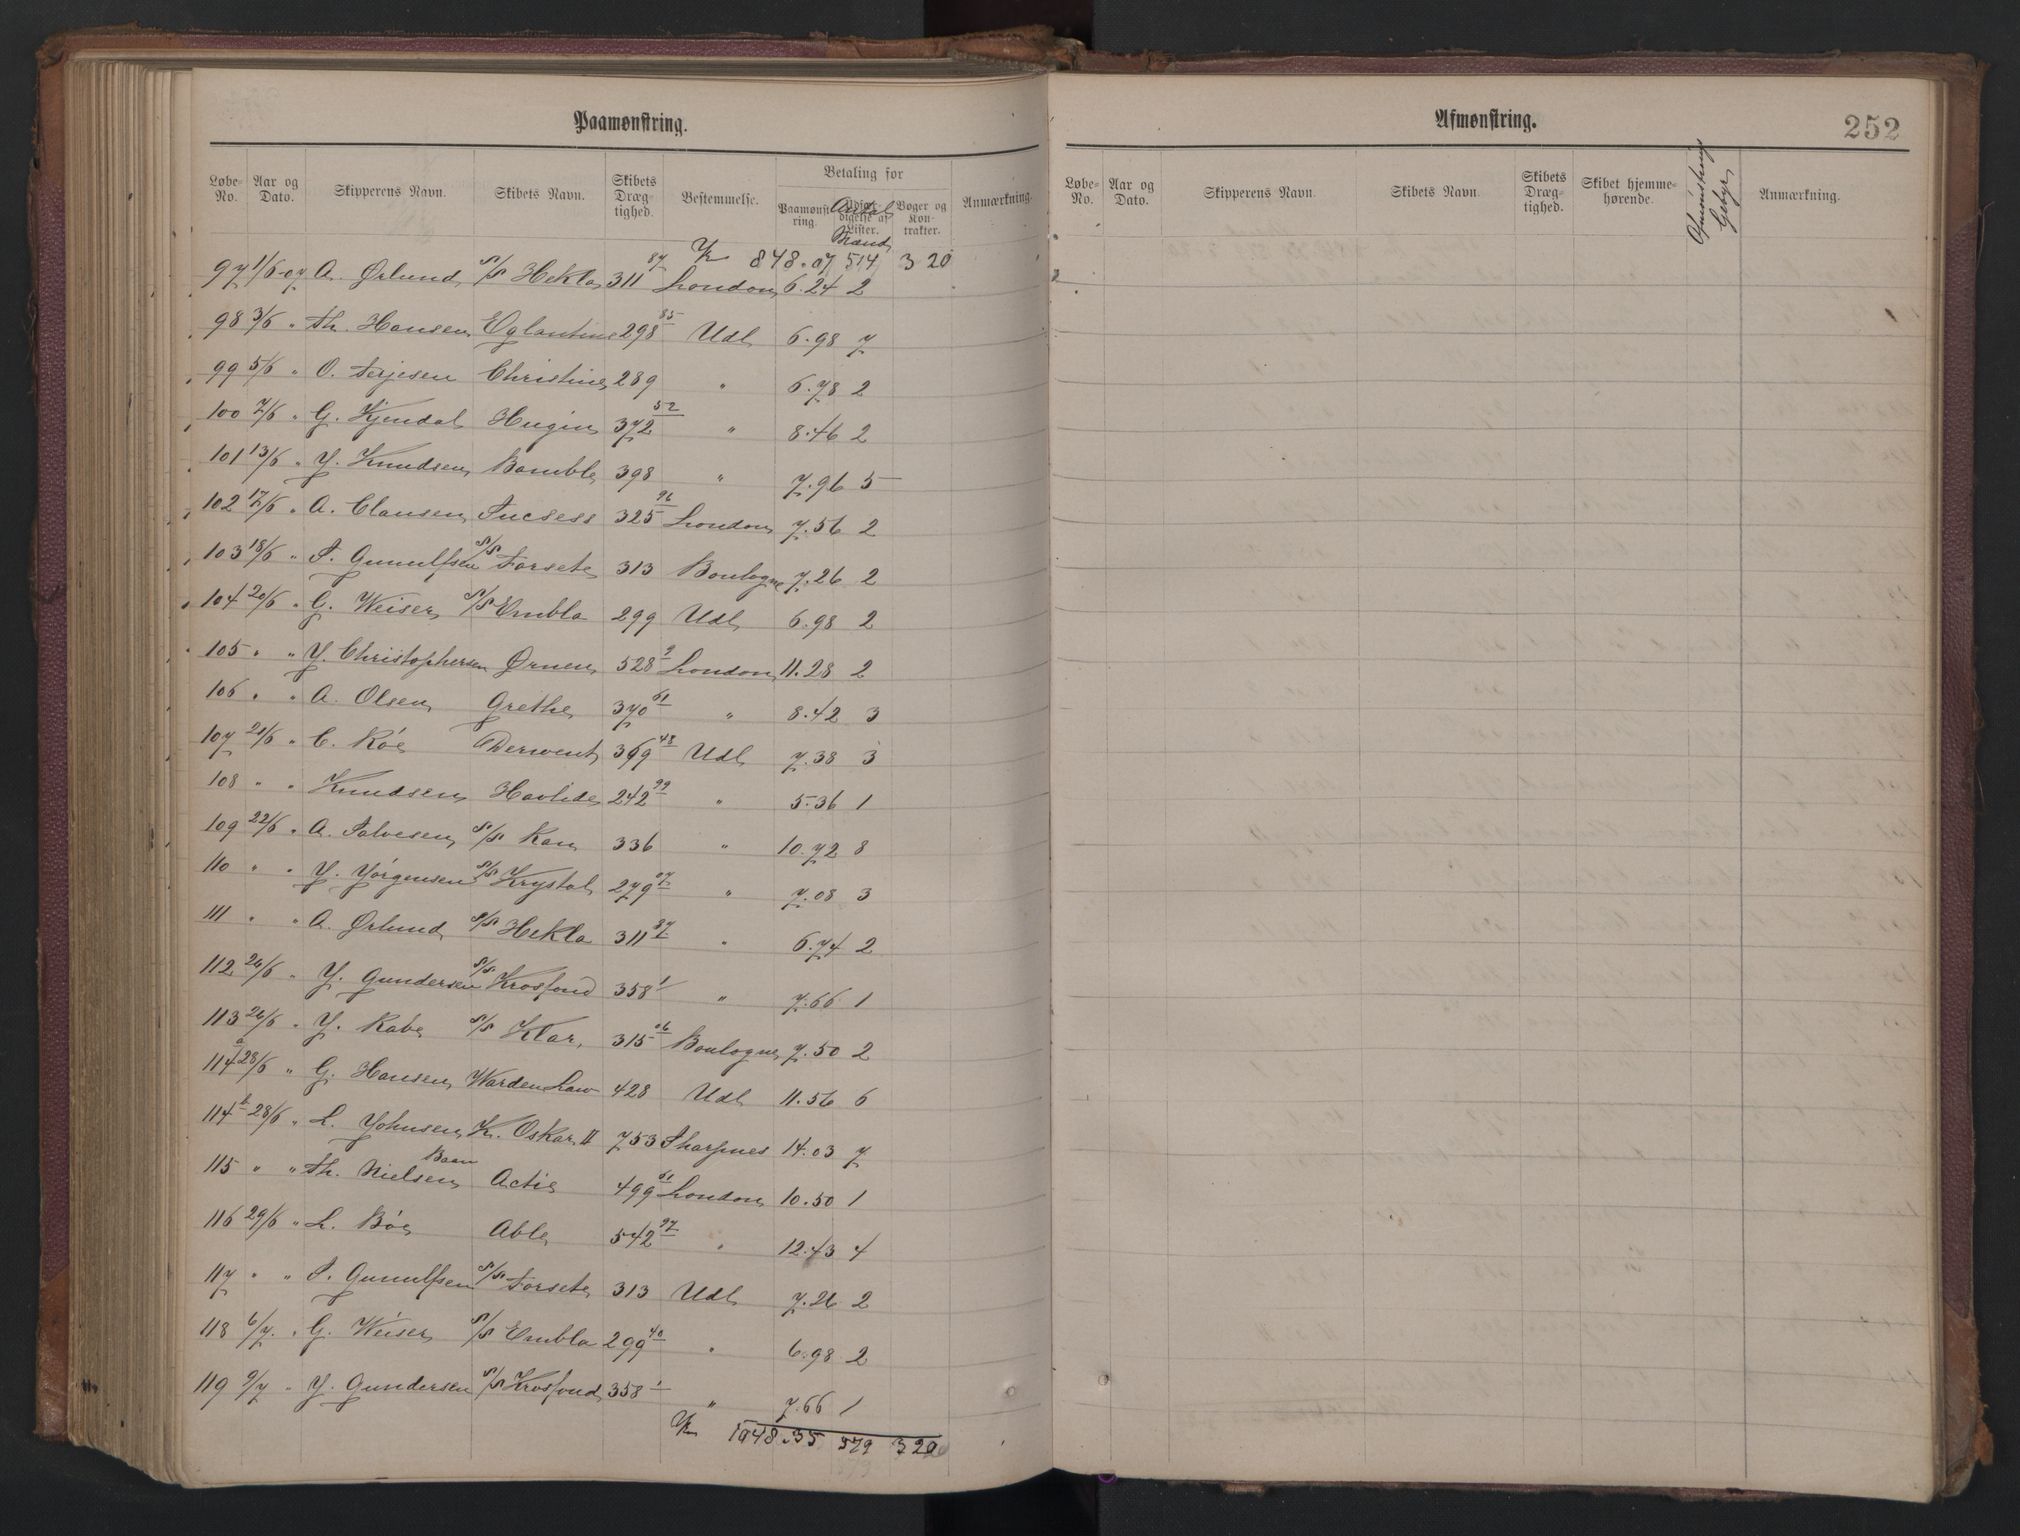 Paamønstring.
Løbe-No. Aar og Dato. Skipperens Navn. Skibets Navn. Skibets Dræg-tighed. Bestemmelse. Betaling for Paamønst-ring. Udfær-digelse af Lister. Antal Mand Bøger og Kon-trakter. Anmærkning.
Kr 848.07 514 3 20
97 1/6-07 A. Ørlund s/s Hekla 311 87 London 6.24 2
98 3/6 " Th. Hansen Eglantine 298 85 Udl 6.98 7
99 5/6 " O. Terjesen Christine 289 " 6.78 2
100 7/6 " G. Kjendal Hugin 372 52 " 8.46 2
101 13/6 " J. Knudsen Bamble 398 " 7.96 5
102 17/6 " A. Clausen Sucsess 325 96 London 7.56 2
103 18/6 " S. Gunulfsen s/s Forsete 313 Boulogne 7.26 2
104 20/6 " G. Weiser s/s Embla 299 Udl 6.98 2
105 " " J. Christophersen Ørnen 528 9 London 11.28 2
106 " " A. Olsen Grethe 370 61 " 8.42 3
107 21/6 " C. Röe Derwent 369 48 Udl 7.38 3
108 " " Knudsen Havlide 242 99 " 5.36 1
109 22/6 " A. Salvesen s/s Kan 336 " 10.72 8
110 " " J. Jörgensen s/s Krystal 279 07 " 7.08 3
111 " " A. Ørlund s/s Hekla 311 87 " 6.74 2
112 26/6 " J. Gundersen s/s Krosfond 358 1 " 7.66 1
113 26/6 " J. Rabe s/s Klar 315 06 Boulogne 7.50 2
114 a 28/6 " G. Hansen Warden Law 428 Udl 11.56 6
114 b 28/6 " L. Johnsen K. Oskar II 753 Sharpnes 14.03 7
115 " " Th. Nielsen Baan Actie 499 61 London 10.50 1
116 29/6 " L. Böe Able 542 97 " 12.43 4
117 " " S. Gunulfsen s/s Forsete 313 Udl 7.26 2
118 6/7 " G. Weiser s/s Embla 299 40 " 6.98 2
119 9/7 " J. Gundersen s/s Krosfond 358 1 " 7.66 1
Kr 1048.35 579 3 20
Afmønstring.
252
Løbe-No. Aar og Dato. Skipperens Navn. Skibets Navn. Skibets Dræg-tighed. Skibet hjemme-hørende. Afmönstrings Gebyr Anmærkning.